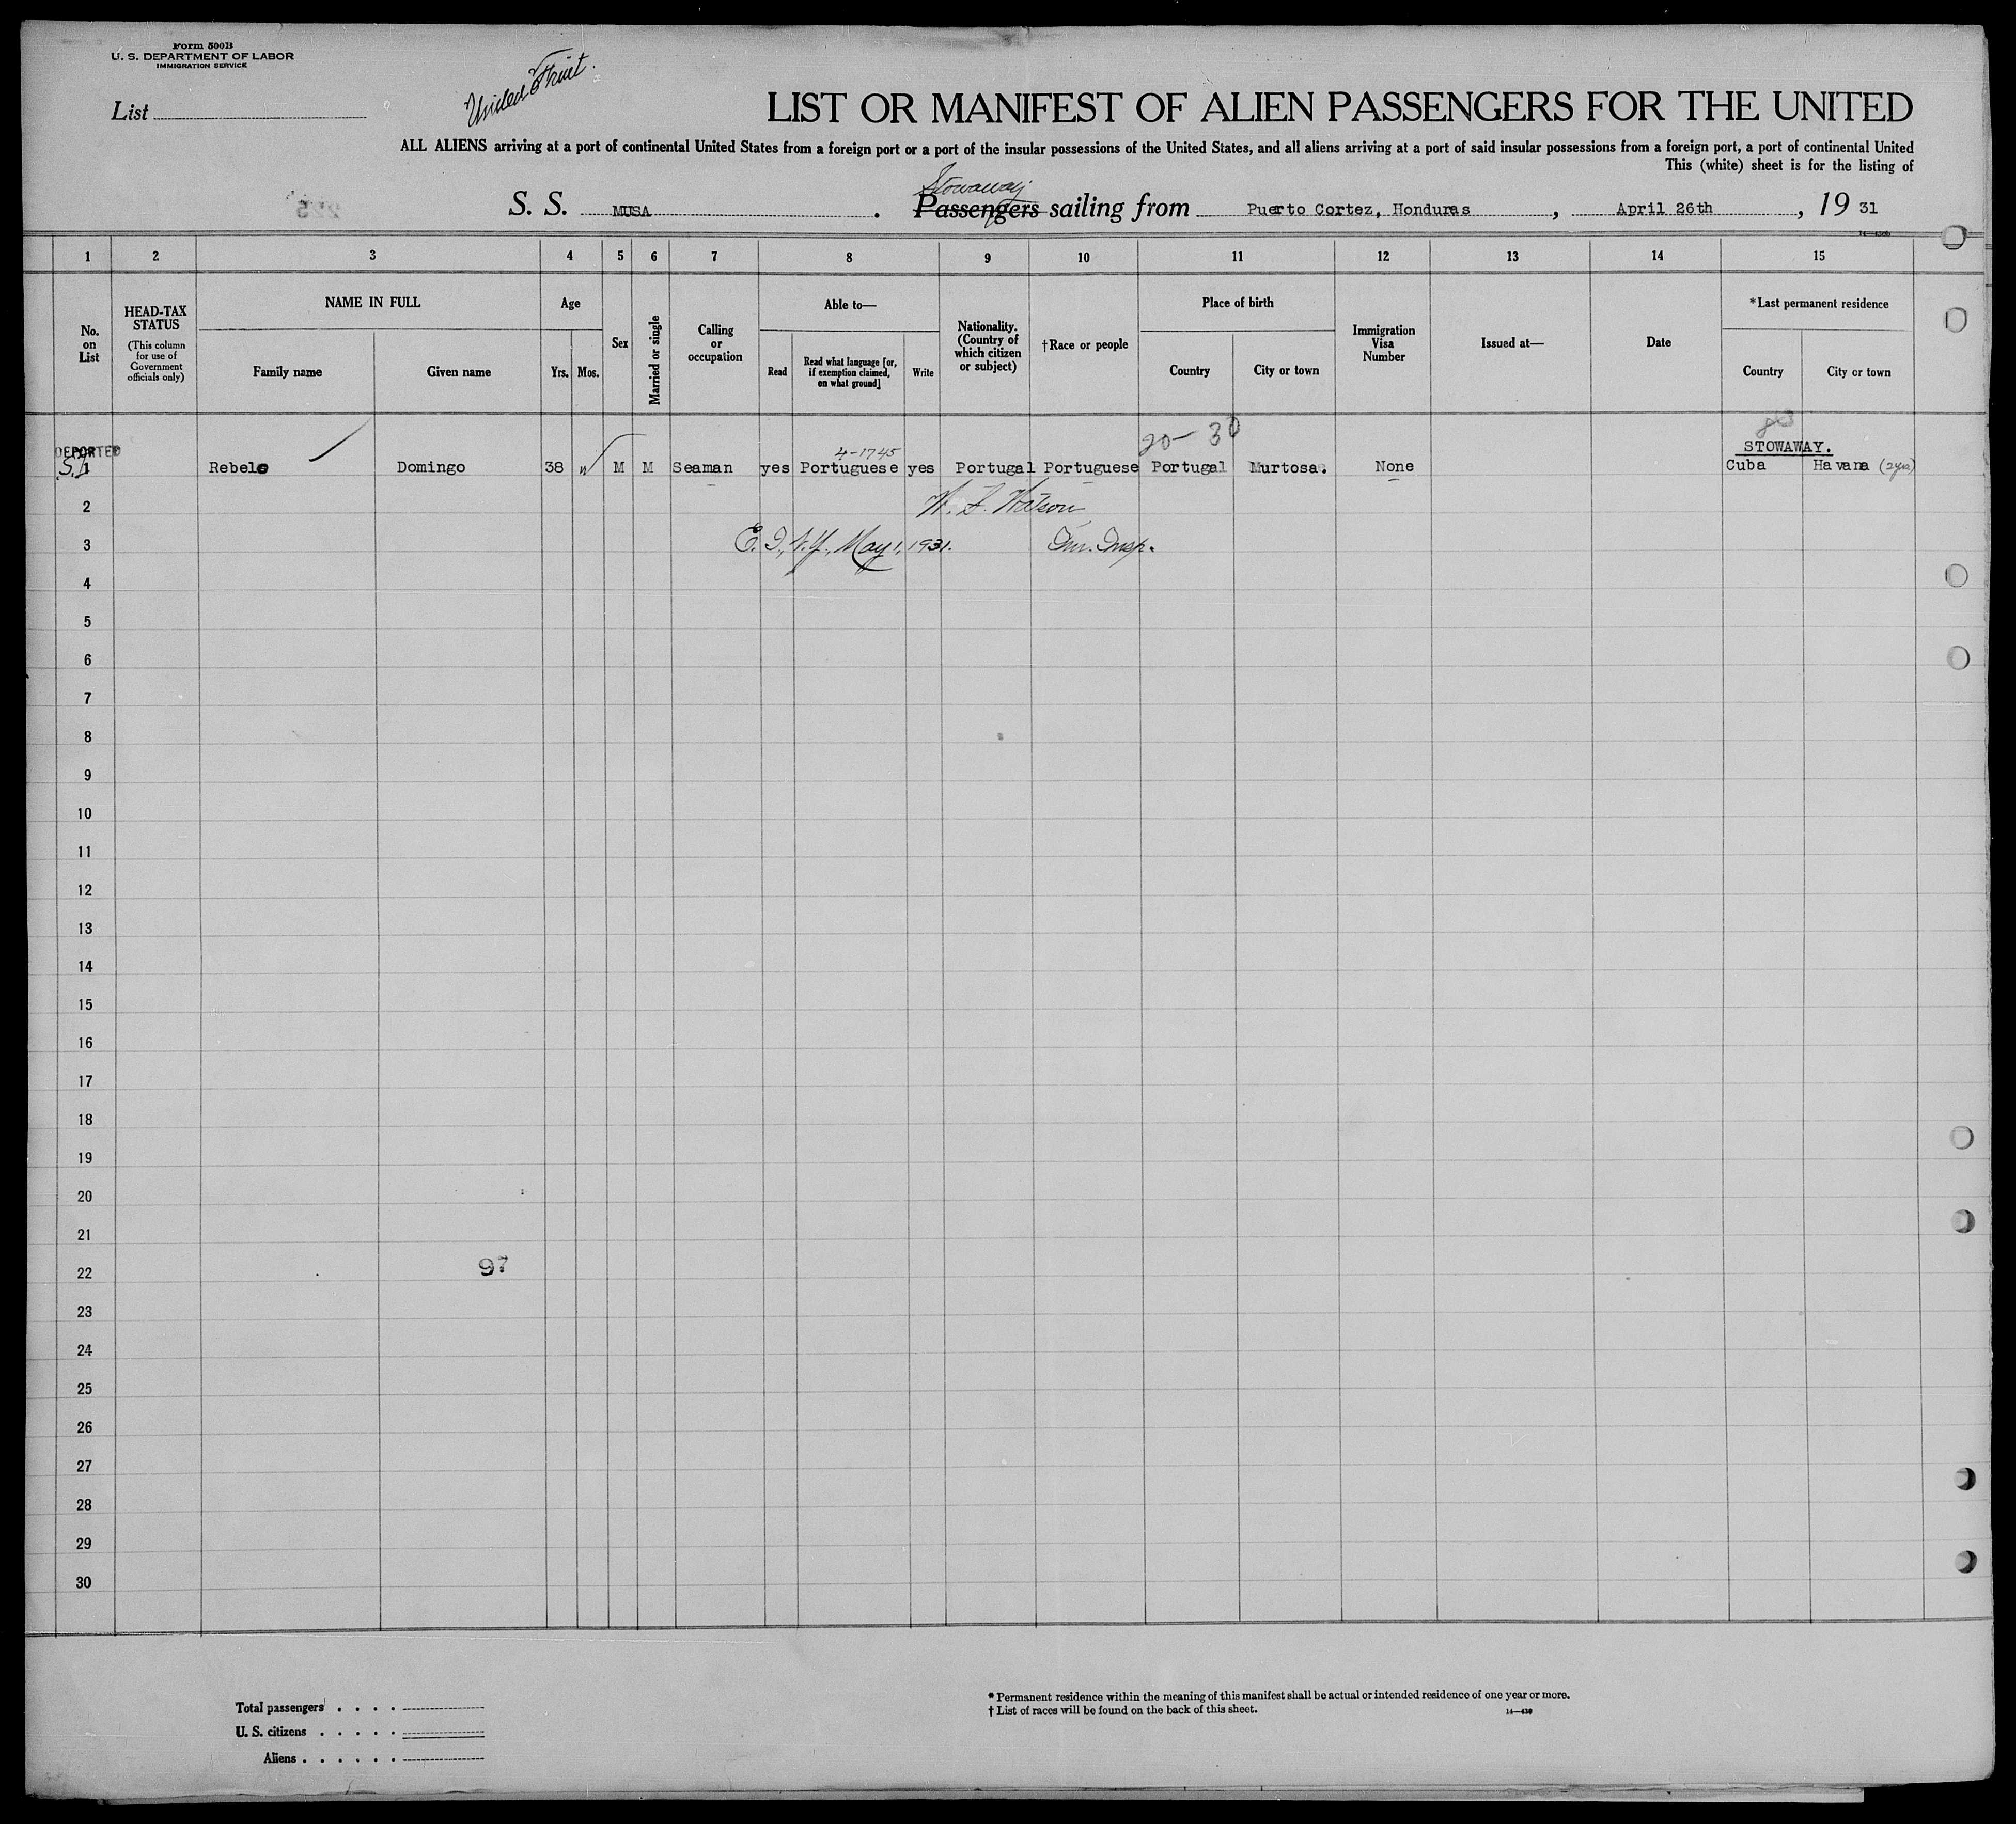 Form 500B
U. S. DEPARTMENT OF LABOR
IMMIGRATION SERVICE
List
United Fruit.
LIST OR MANIFEST OF ALIEN PASSENGERS FOR THE UNITED
ALL ALIENS arriving at a port of continental United States from a foreign port or a port of the insular possessions of the United States, and all aliens arriving at a port of said insular possessions from a foreign port, a port of continental United
This (white) sheet is for the listing of
Stowaway
S. S. MUSA. Passengers sailing from Puerto Cortez, Honduras, April 26th, 19 31
1 2 3 4 5 6 7 8 9 10 11 12 13 14 15
No. on List
HEAD-TAX STATUS
(This column for use of Government officials only)
NAME IN FULL
Family name
Given name
Age
Yrs.
Mos.
Sex
Married or single
Calling or occupation
Able to—
Read
Read what language [or, if exemption claimed, on what ground]
Write
Nationality. (Country of which citizen or subject)
†Race or people
Place of birth
Country
City or town
Immigration Visa Number
Issued at—
Date
*Last permanent residence
Country
City or town
20- 30
DEPORTED
4-1745
STOWAWAY.
S.I. 1 Rebelo Domingo 38 M M Seaman yes Portuguese yes Portugal Portuguese Portugal Murtosa. None Cuba Havana (2yrs)
2 W. S. Watson
3 E. I., N.Y., May 1, 1931. Imm. Insp.
4
5
6
7
8
9
10
11
12
13
14
15
16
17
18
19
20
21
22 97
23
24
25
26
27
28
29
30
Total passengers . . . .
U. S. citizens . . . . .
Aliens . . . . . .
* Permanent residence within the meaning of this manifest shall be actual or intended residence of one year or more.
† List of races will be found on the back of this sheet.